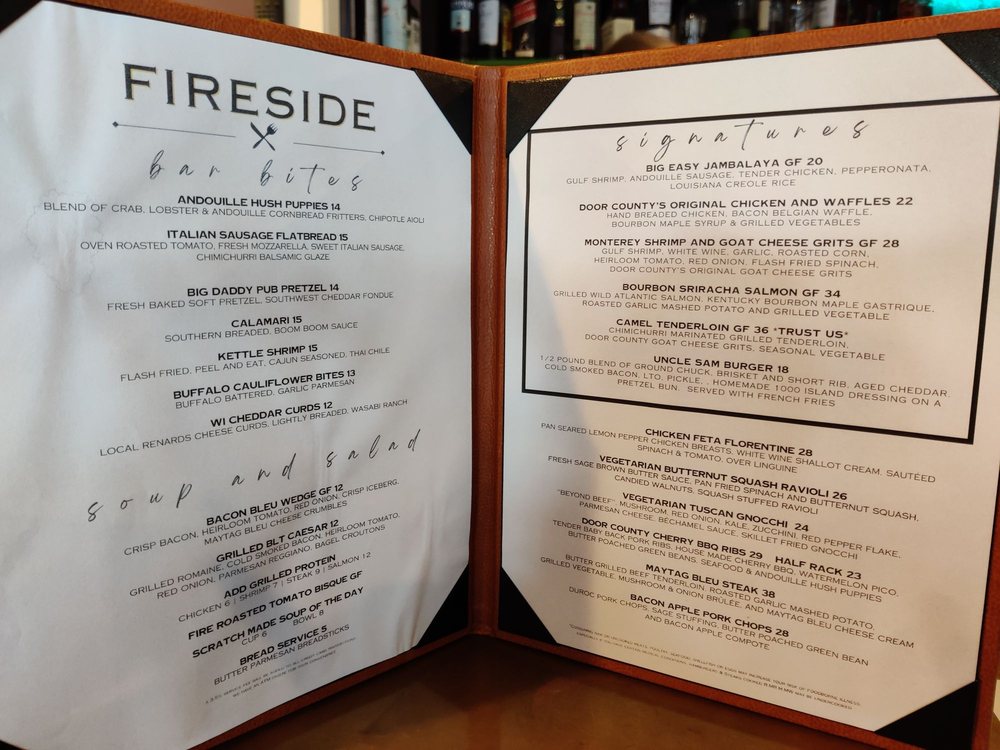 FIRESIDE
bar bites
ANDOUILLE HUSH PUPPIES 14
BLEND OF CRAB, LOBSTER & ANDOUILLE CORNBREAD FRITTERS, CHIPOTLE AIOLI
ITALIAN SAUSAGE FLATBREAD 15
OVEN ROASTED TOMATO, FRESH MOZZARELLA, SWEET ITALIAN SAUSAGE,
CHIMICHURRI BALSAMIC GLAZE
BIG DADDY PUB PRETZEL 14
FRESH BAKED SOFT PRETZEL, SOUTHWEST CHEDDAR FONDUE
CALAMARI 15
SOUTHERN BREADED, BOOM BOOM SAUCE
KETTLE SHRIMP 15
FLASH FRIED, PEEL AND EAT, CAJUN SEASONED, THAI CHILE
BUFFALO CAULIFLOWER BITES 13
BUFFALO BATTERED, GARLIC PARMESAN
WI CHEDDAR CURDS 12
LOCAL RENARDS CHEESE CURDS, LIGHTLY BREADED, WASABI RANCH
soup and salad
BACON BLEU WEDGE GF 12
CRISP BACON, HEIRLOOM TOMATO, RED ONION, CRISP ICEBERG,
MAYTAG BLEU CHEESE CRUMBLES
GRILLED BLT CAESAR 12
GRILLED ROMAINE, COLD SMOKED BACON, HEIRLOOM TOMATO,
RED ONION, PARMESAN REGGIANO, BAGEL CROUTONS
ADD GRILLED PROTEIN
CHICKEN 6 | SHRIMP 7 | STEAK 9 | SALMON 12
FIRE ROASTED TOMATO BISQUE GF
SCRATCH MADE SOUP OF THE DAY
CUP 6 BOWL 8
BREAD SERVICE 5
BUTTER PARMESAN BREADSTICKS
signatures
BIG EASY JAMBALAYA GF 20
GULF SHRIMP, ANDOUILLE SAUSAGE, TENDER CHICKEN, PEPPERONATA,
LOUISIANA CREOLE RICE
DOOR COUNTY'S ORIGINAL CHICKEN AND WAFFLES 22
HAND BREADED CHICKEN, BACON BELGIAN WAFFLE,
BOURBON MAPLE SYRUP & GRILLED VEGETABLES
MONTEREY SHRIMP AND GOAT CHEESE GRITS GF 28
GULF SHRIMP, WHITE WINE, GARLIC, ROASTED CORN,
HEIRLOOM TOMATO, RED ONION, FLASH FRIED SPINACH,
DOOR COUNTY'S ORIGINAL GOAT CHEESE GRITS
BOURBON SRIRACHA SALMON GF 34
GRILLED WILD ATLANTIC SALMON, KENTUCKY BOURBON MAPLE GASTRIQUE,
ROASTED GARLIC MASHED POTATO AND GRILLED VEGETABLE
CAMEL TENDERLOIN GF 36 *TRUST US*
CHIMICHURRI MARINATED GRILLED TENDERLOIN,
DOOR COUNTY GOAT CHEESE GRITS, SEASONAL VEGETABLE
UNCLE SAM BURGER 18
1/2 POUND BLEND OF GROUND CHUCK, BRISKET AND SHORT RIB, AGED CHEDDAR,
COLD SMOKED BACON, LTO, PICKLE, . HOMEMADE 1000 ISLAND DRESSING ON A
PRETZEL BUN. SERVED WITH FRENCH FRIES
CHICKEN FETA FLORENTINE 28
PAN SEARED LEMON PEPPER CHICKEN BREASTS, WHITE WINE SHALLOT CREAM, SAUTÉED
SPINACH & TOMATO, OVER LINGUINE
VEGETARIAN BUTTERNUT SQUASH RAVIOLI 26
FRESH SAGE BROWN BUTTER SAUCE, PAN FRIED SPINACH AND BUTTERNUT SQUASH,
CANDIED WALNUTS, SQUASH STUFFED RAVIOLI
VEGETARIAN TUSCAN GNOCCHI 24
"BEYOND BEEF", MUSHROOM, RED ONION, KALE, ZUCCHINI, RED PEPPER FLAKE,
PARMESAN CHEESE, BÉCHAMEL SAUCE, SKILLET FRIED GNOCCHI
DOOR COUNTY CHERRY BBQ RIBS 29 HALF RACK 23
TENDER BABY BACK PORK RIBS, HOUSE MADE CHERRY BBQ, WATERMELON PICO,
BUTTER POACHED GREEN BEANS, SEAFOOD & ANDOUILLE HUSH PUPPIES
MAYTAG BLEU STEAK 38
BUTTER GRILLED BEEF TENDERLOIN, ROASTED GARLIC MASHED POTATO,
GRILLED VEGETABLE, MUSHROOM & ONION BRÛLÉE, AND MAYTAG BLEU CHEESE CREAM
BACON APPLE PORK CHOPS 28
DUROC PORK CHOPS, SAGE STUFFING, BUTTER POACHED GREEN BEAN
AND BACON APPLE COMPOTE